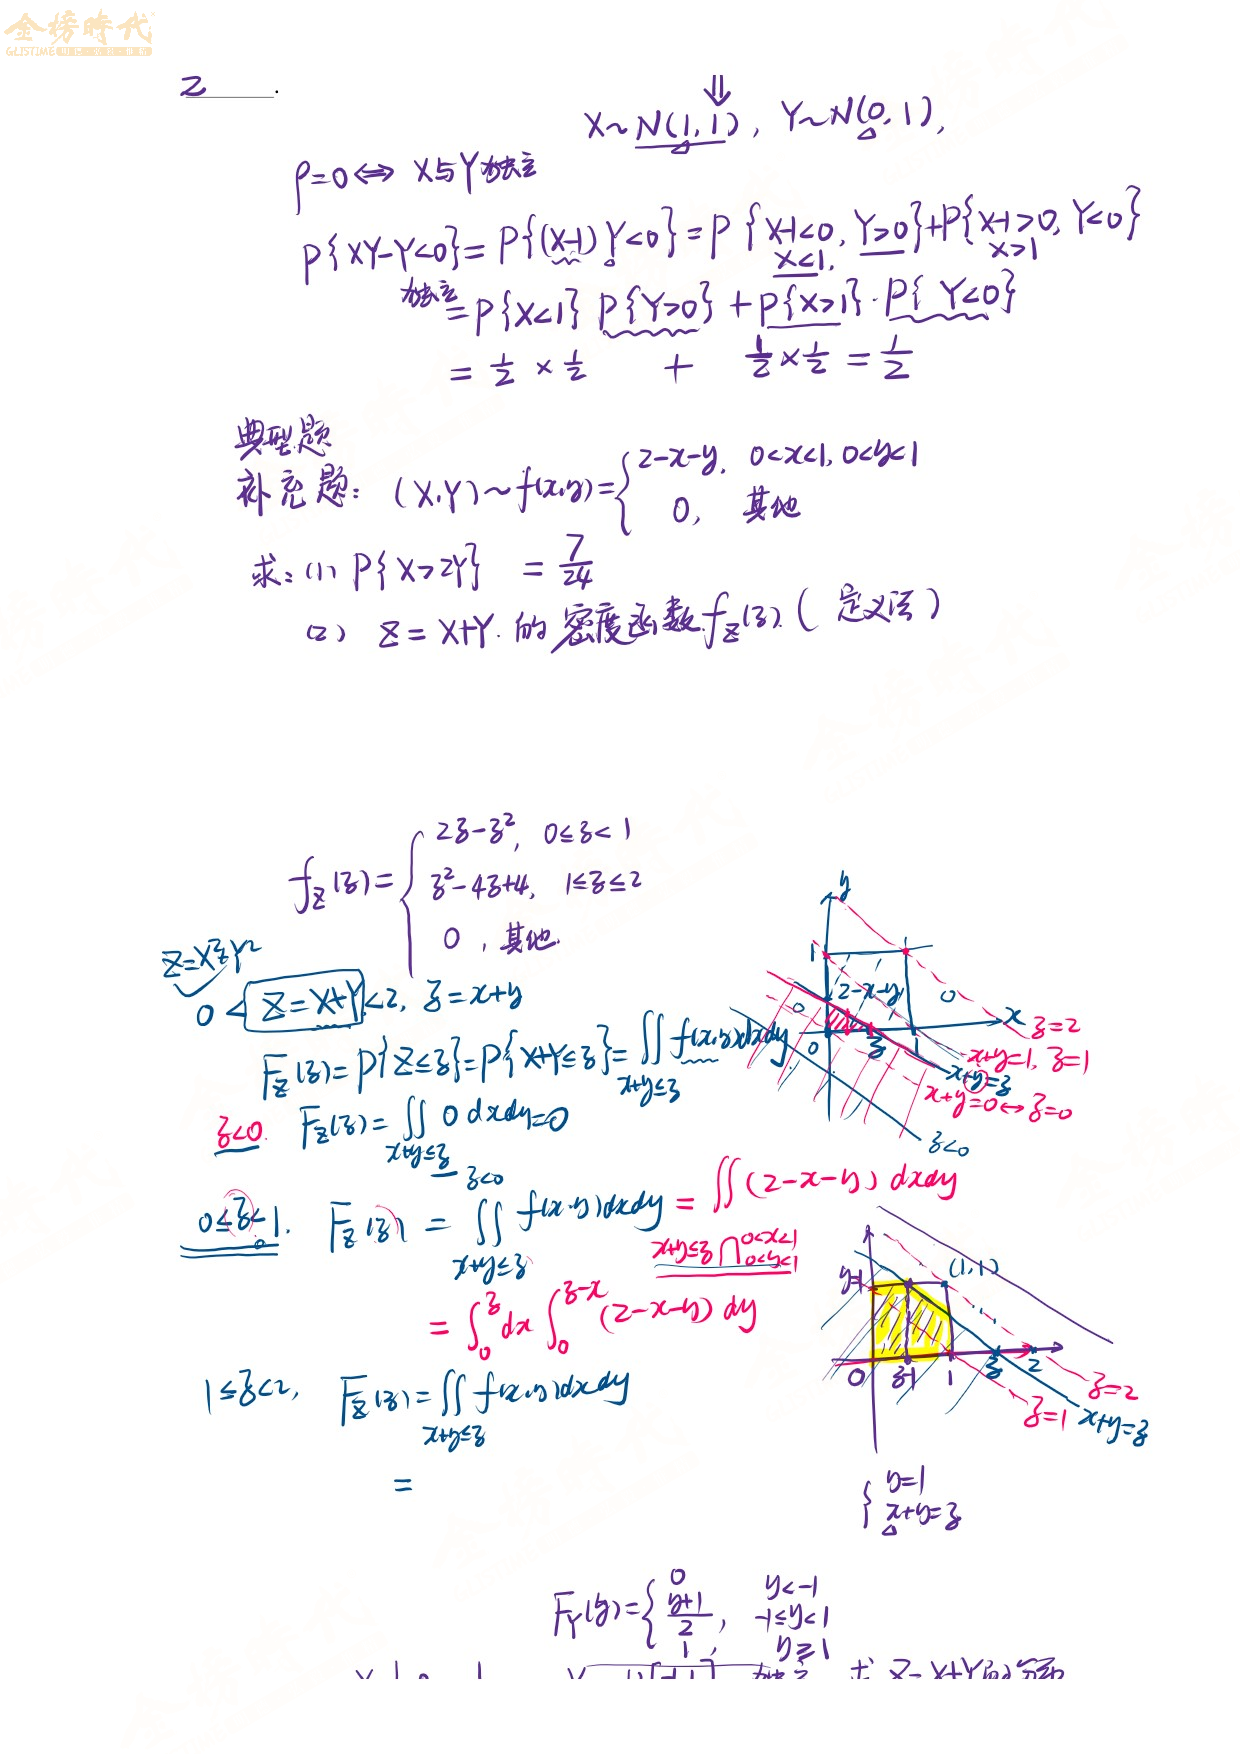 金榜時代
2 .
⇓
X~N(1,1), Y~N(0,1),
ρ=0⟺X与Y独立
P{XY-Y<0}=P{(X-1)Y<0}=P{X-1<0,Y>0}+P{X-1>0,Y<0}
X<1, X>1
独立
=P{X<1}P{Y>0}+P{X>1}·P{Y<0}
=1/2×1/2 + 1/2×1/2=1/2
典型题
补充题: (X,Y)~f(x,y)={2-x-y, 0<x<1,0<y<1
0, 其他
求:(1) P{X>2Y} =7/24
(2) Z=X+Y.的密度函数f_Z(z).(定义法)
f_Z(z)={2z-z², 0≤z<1
z²-4z+4, 1≤z≤2
0, 其他.
Z=X²+Y²
0<Z=X+Y<2, z=x+y
F_Z(z)=P{Z≤z}=P{X+Y≤z}=∬f(x,y)dxdy
x+y≤z
z<0. F_Z(z)=∬0dxdy=0
x+y≤z
z<0
0≤z<1. F_Z(z)=∬f(x,y)dxdy=∬(2-x-y)dxdy
x+y≤z x+y≤z∩0<x<1
0<y<1
=∫₀^z dx∫₀^(z-x)(2-x-y)dy
1≤z<2, F_Z(z)=∬f(x,y)dxdy
x+y≤z
=
y
1
2-x-y
0
0
x
0
z
1
z=2
x+y=1, z=1
x+y=z
x+y=0↔z=0
z<0
y=1
(1,1)
0 z-1 1 z 2
z=2
z=1
x+y=z
{y=1
x+y=z
F_Y(y)={0 y<-1
(y+1)/2, -1≤y<1
1, y≥1